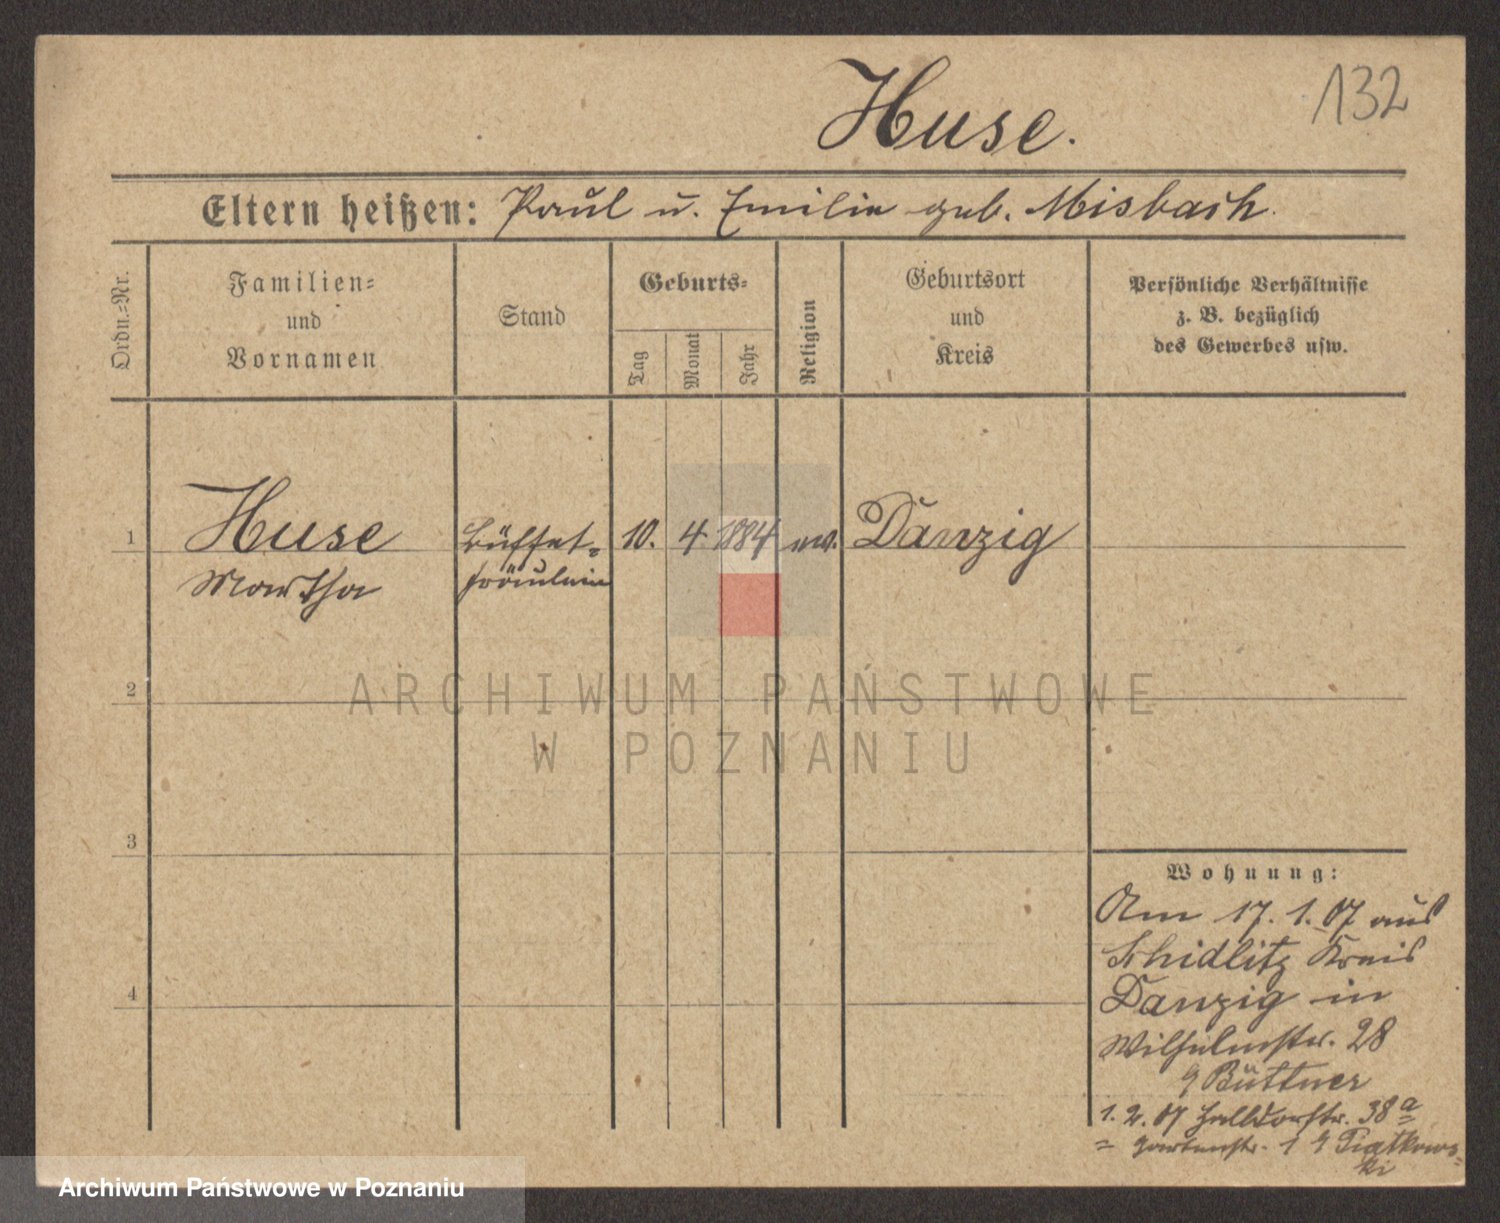 132
Huse.
Eltern heißen: Paul u. Emilie geb. Misbach.
Ordn.=Nr.
Familien=
und
Vornamen
Stand
Geburts=
Tag
Monat
Jahr
Religion
Geburtsort
und
Kreis
Persönliche Verhältnisse
z. B. bezüglich
des Gewerbes usw.
1 Huse Büffet= 10. 4 1884 ev. Danzig
Martha fräulein
ARCHIWUM PAŃSTWOWE
W POZNANIU
2
3
4
Wohnung:
Am 17. 1. 07 aus
Schidlitz Kreis
Danzig in
Wilhelmstr. 28
Büttner
1. 2. 07 Halldorfstr. 38 a
= Gartenstr. 1 Piątkows=
ki
Archiwum Państwowe w Poznaniu